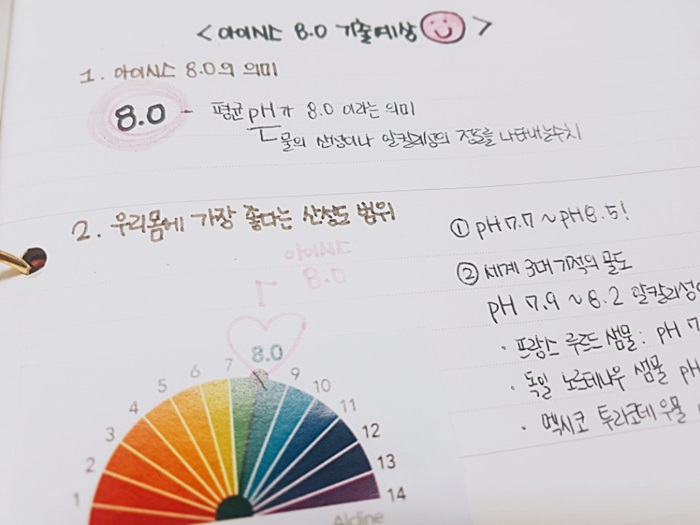 <아이시스 8.0 기출예상 >
1. 아이시스 8.0의 의미
8.0 - 평균 pH가 8.0 이라는 의미
물의 산성이나 알칼리성의 정도를 나타내는 수치
2. 우리몸에 가장 좋다는 산성도 범위
아이시스
8.0
8.0
1
2
3
4
5
6
7
9
10
11
12
13
14
① pH 7.7 ~ pH 8.5!
② 세계 3대 기적의 물도
pH 7.9 ~ 8.2 알칼리성
· 프랑스 루르드 샘물 : pH 7
· 독일 노르데나우 샘물 pH
· 멕시코 트라코테 우물